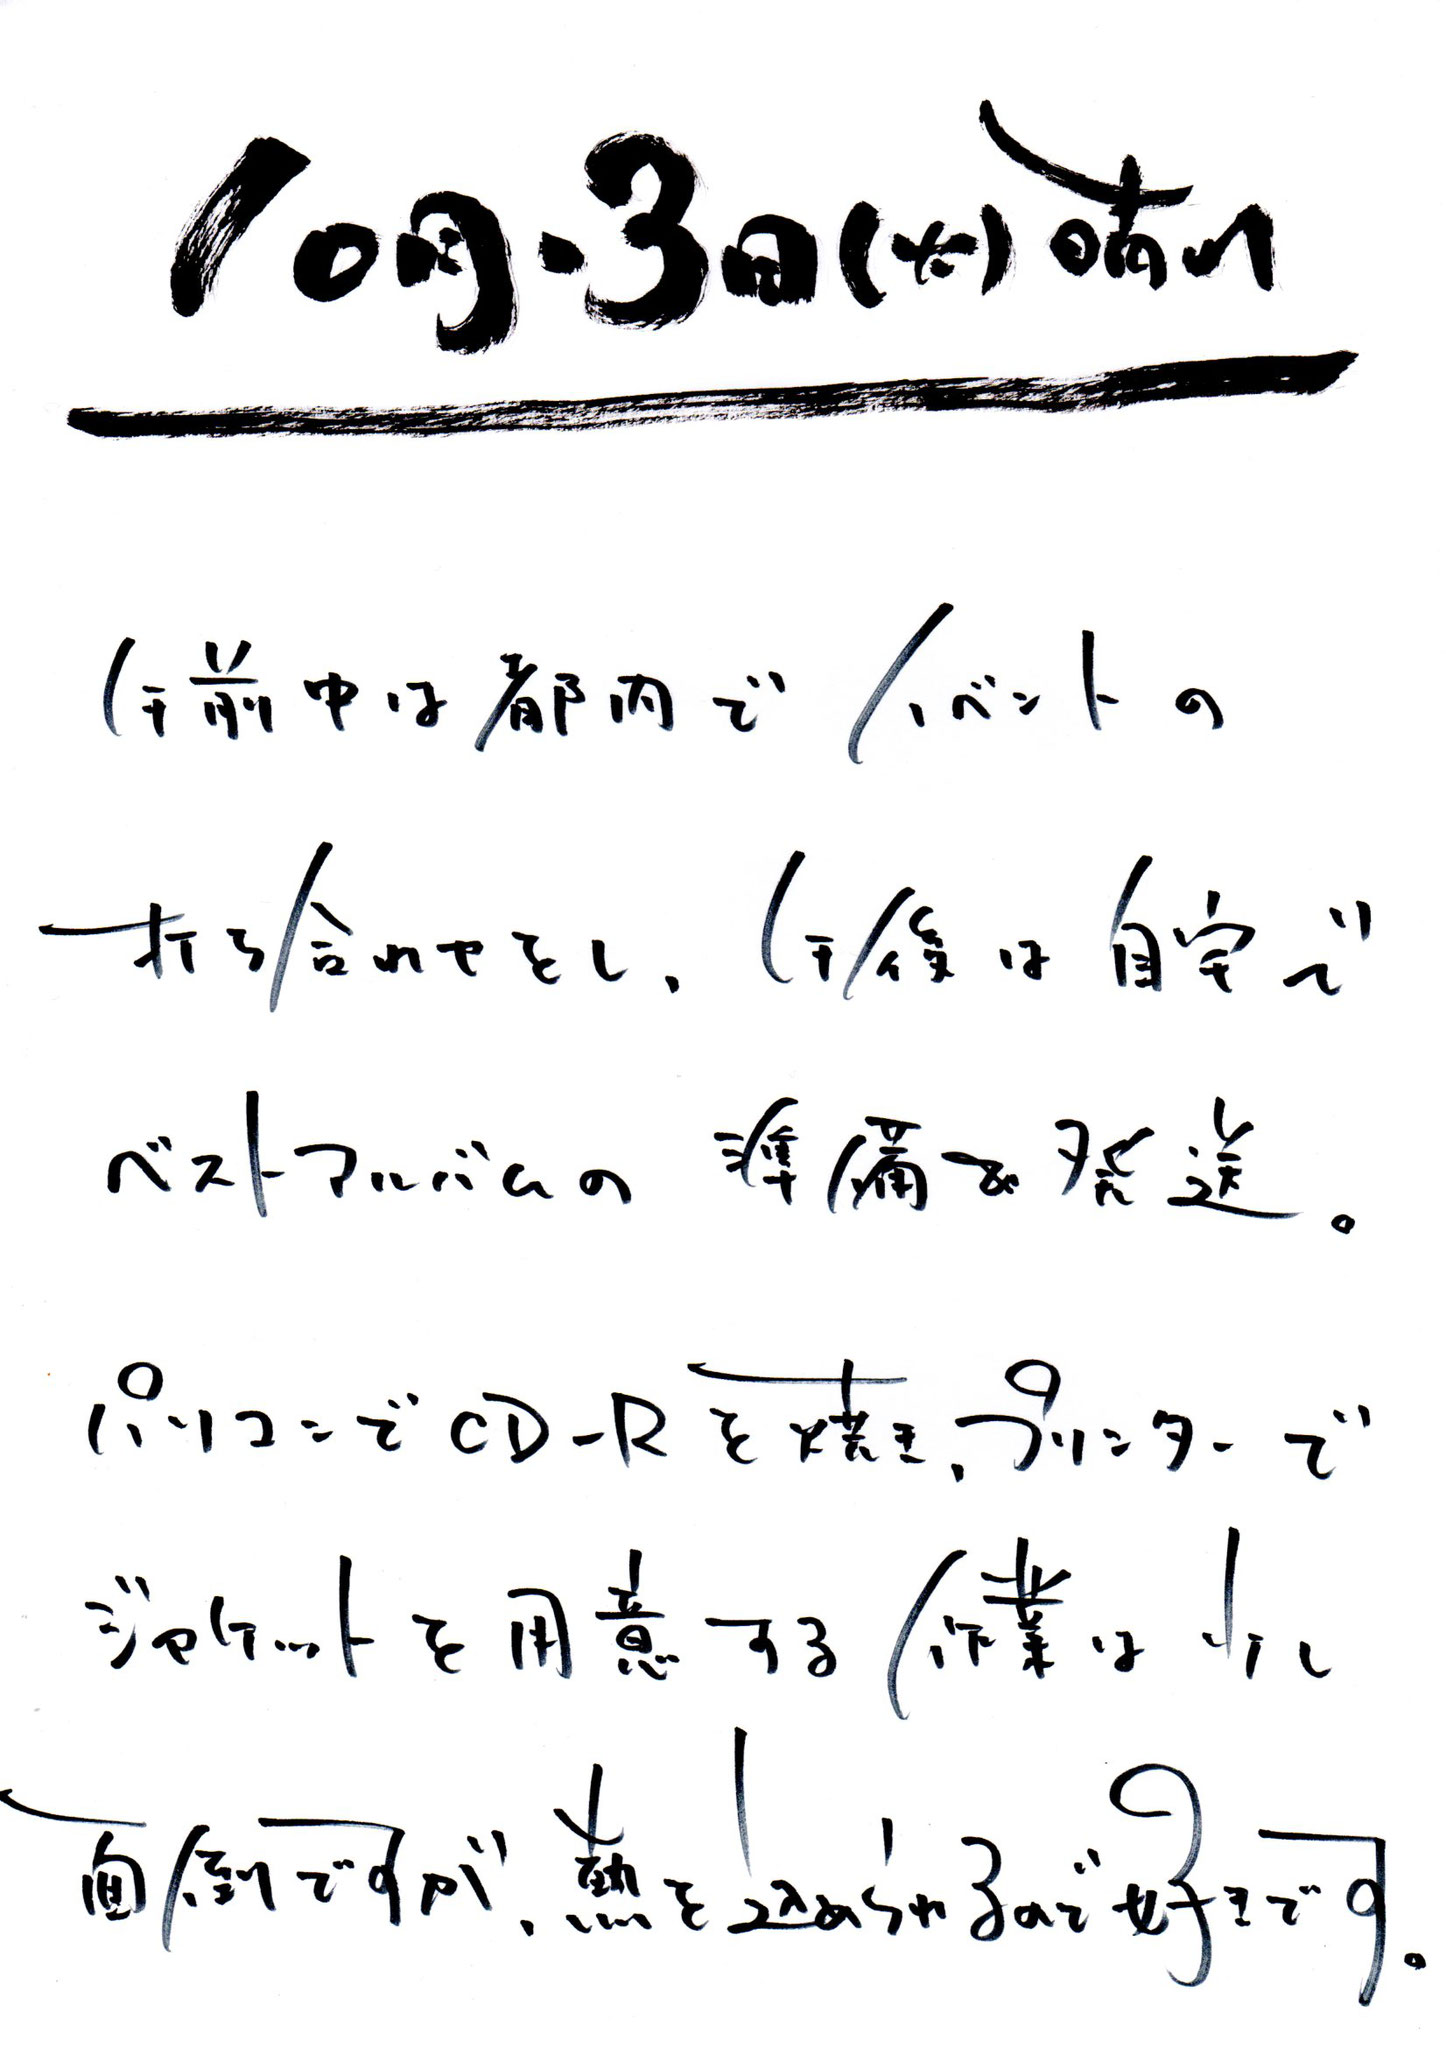 10月・3日(火)晴れ
午前中は都内でイベントの
打ち合わせをし、午後は自宅で
ベストアルバムの準備&発送。
パソコンでCD-Rを焼き、プリンターで
ジャケットを用意する作業は少し
面倒ですが、熱を込められるので好きです。